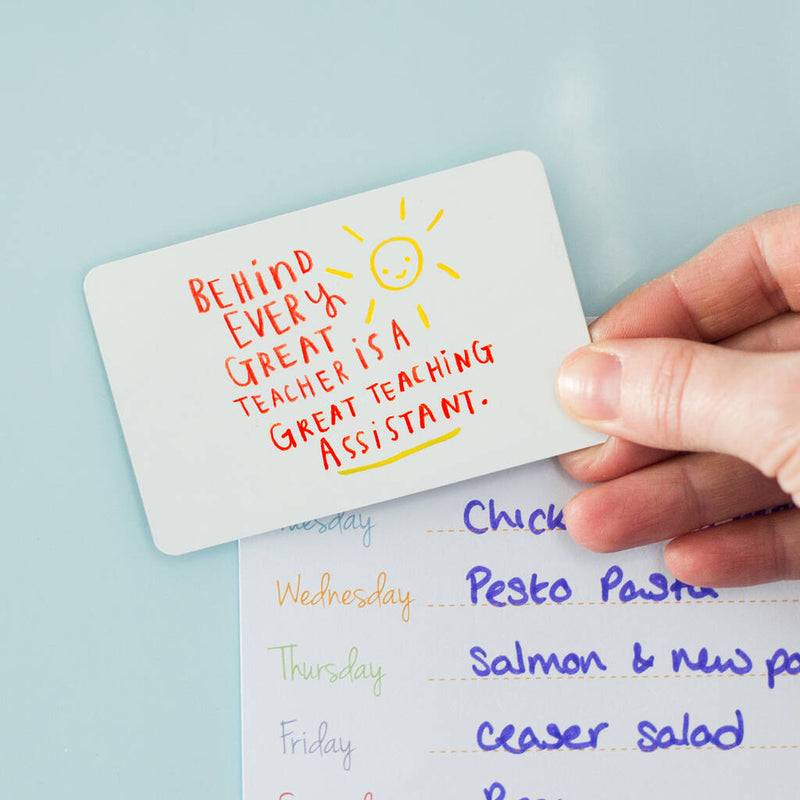 BEHIND
EVERY
GREAT
TEACHER IS A
GREAT TEACHING
ASSISTANT.
Tuesday
Wednesday Pesto Pasta
Thursday Salmon & new
Friday Ceaser salad